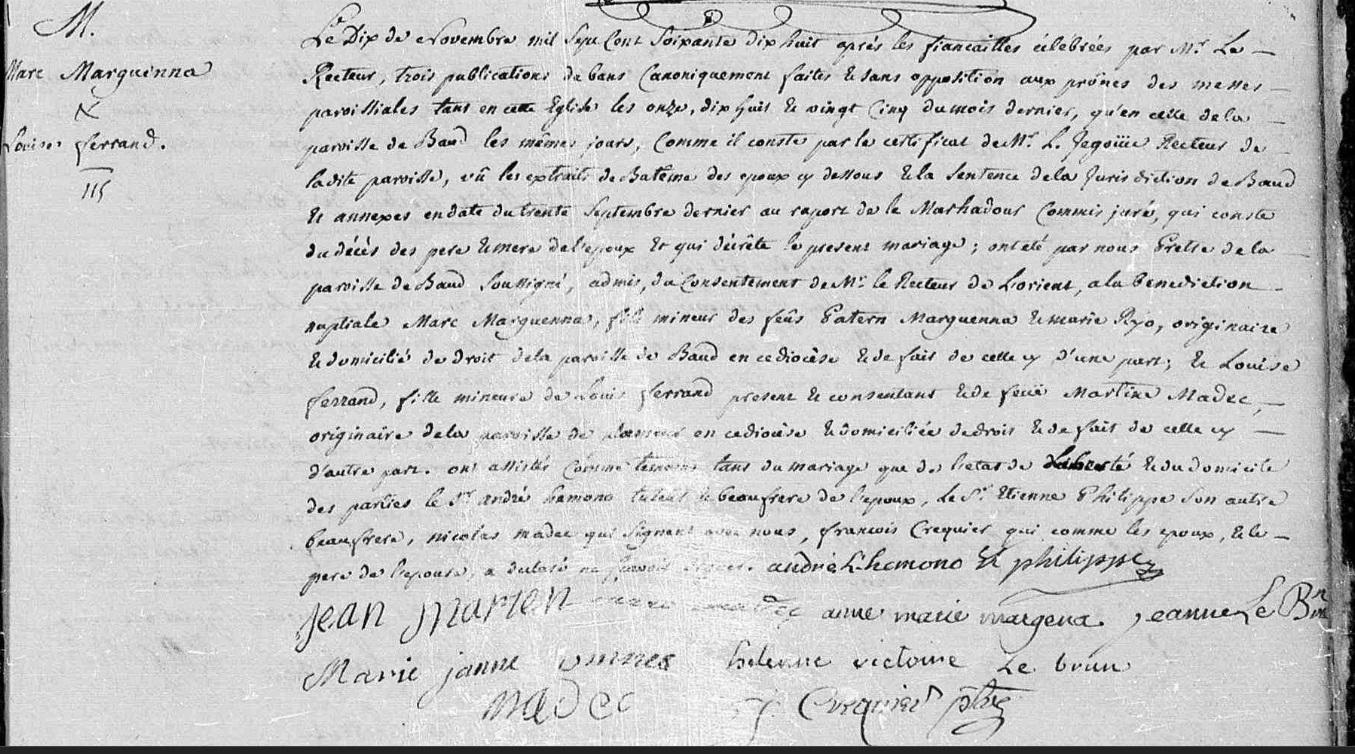 M.
Marc Marquenna
X
Louise ferrand.
115
Le Dix de Novembre mil Sept Cent Soixante dix huit après les fiancailles célebrées par Mr. Le
Recteur, trois publications de bans Canoniquement faites & sans opposition aux prônes des messes
paroissiales tant en cette Eglise les onze, dix huit & vingt Cinq du mois dernier, qu'en celle de la
paroisse de Baud les mêmes jours, Comme il conste par le certificat de Mr. L. Recteur de
la dite paroisse, vû les extraits de Batême des epoux cy dessous & la Sentence de la Jurisdiction de Baud
Et annexes en date du trente Septembre dernier au raport de le Marhadour Commis juré, qui conste
du décès des pere & mere de l'epoux Et qui décrête le present mariage; ont été par nous Prêtre de la
paroisse de Baud Soussigné, admis, du Consentement de Mr. le Recteur de Lorient, a la benediction
nuptiale Marc Marquenna, fils mineur des feûs Patern Marquenna & marie Ryo, originaire
& domicilié de droit de la paroisse de Baud en ce diocèse & de fait de celle cy d'une part; & Louise
ferrand, fille mineure de Louis ferrand present & consentant & de feüe Martine Madec,
originaire de la paroisse de en ce diocèse & domiciliée de droit & de fait de celle cy
d'autre part. ont assistés Comme temoins tant du mariage que de l'etat de liberté & du domicile
des parties le Sr. andré hamono tuteur & beaufrere de l'epoux, le Sr. Etienne Philippe Son autre
beaufrere, nicolas madec qui Signent avec nous, francois Crequier qui comme les epoux, & le
pere de l'epouse, a declaré ne Scavoir Signer. andré L. hamono Et philippe
jean Marien madec anne marie margena. jeanne Le Bn
Marie janne omnes helenne victoire Le brun
madec